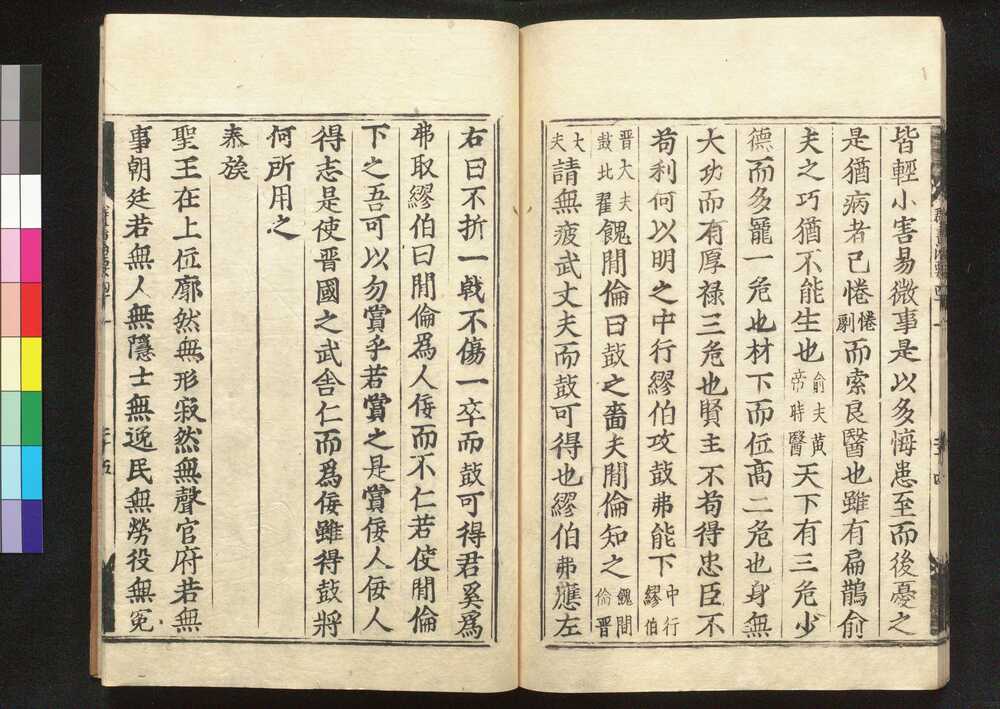 皆輕小害易微事是以多悔患至而後憂之
是猶病者已惓惓劇而索良醫也雖有扁鵲俞
夫之巧猶不能生也俞夫黄帝時醫天下有三危少
德而多寵一危也材下而位高二危也身無
大功而有厚禄三危也賢主不苟得忠臣不
苟利何以明之中行繆伯攻鼓弗能下中行繆伯
晋大夫鼓北翟餽閒倫曰鼓之嗇夫閒倫知之餽閒倫晋
大夫請無疲武丈夫而鼓可得也繆伯弗應左
右曰不折一戟不傷一卒而鼓可得君奚爲
弗取繆伯曰閒倫爲人佞而不仁若使閒倫
下之吾可以勿賞乎若賞之是賞佞人佞人
得志是使晋國之武舎仁而爲佞雖得鼓將
何所用之
泰族
聖王在上位廓然無形寂然無聲官府若無
事朝廷若無人無隱士無逸民無勞役無寃